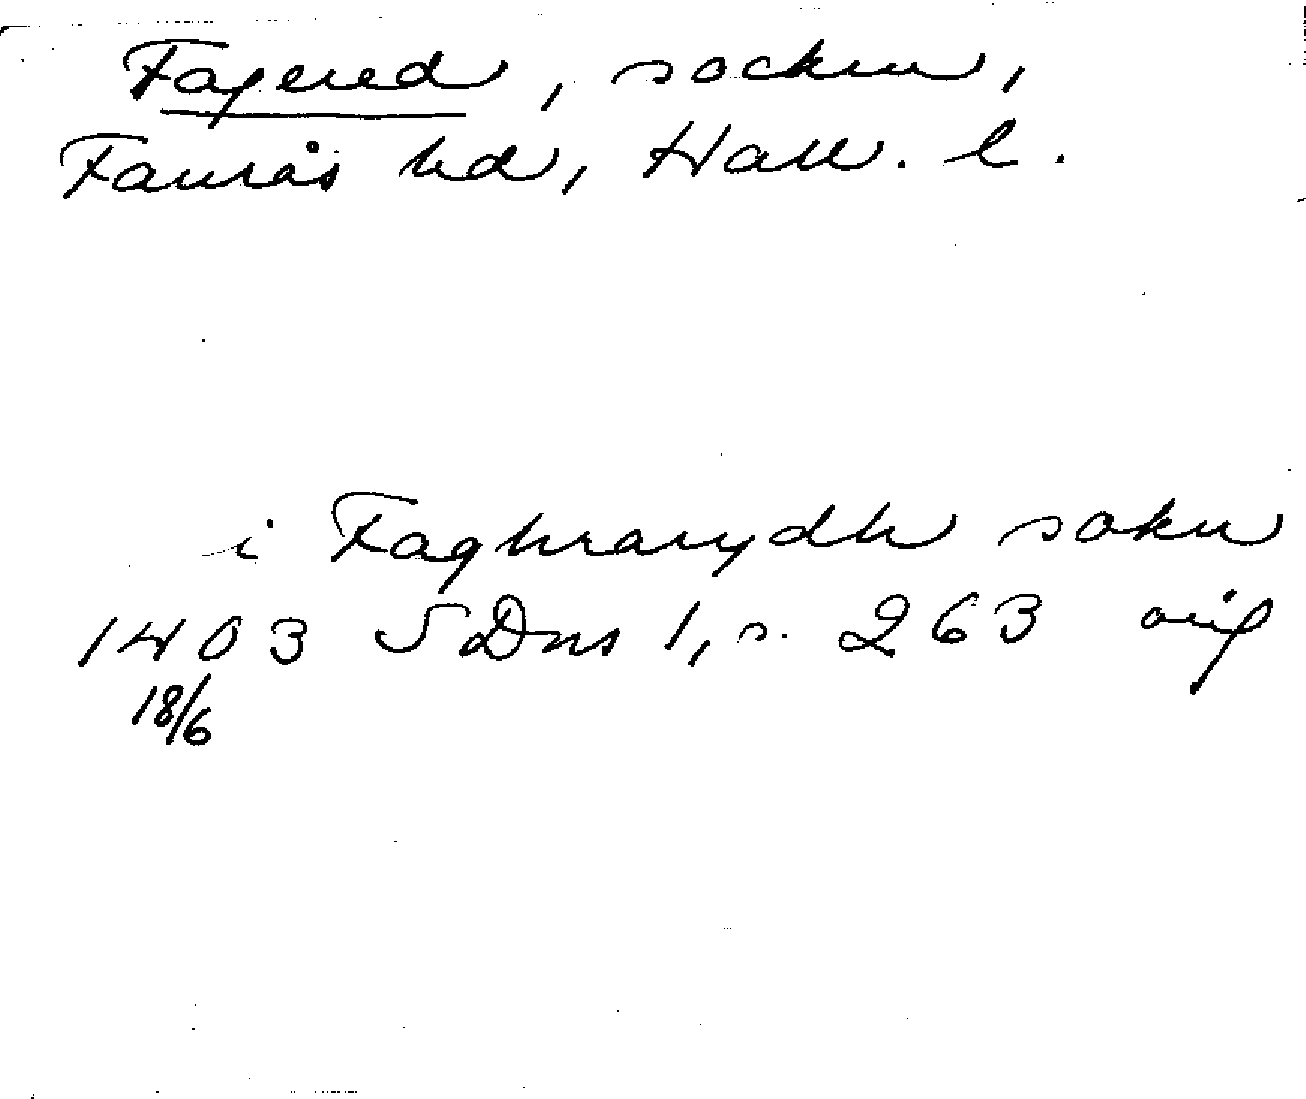 Fagered, socken,
Faurås hd, Hall. l.
i Faghrarydh sokn
1403 SDns 1, s. 263 orig
18/6